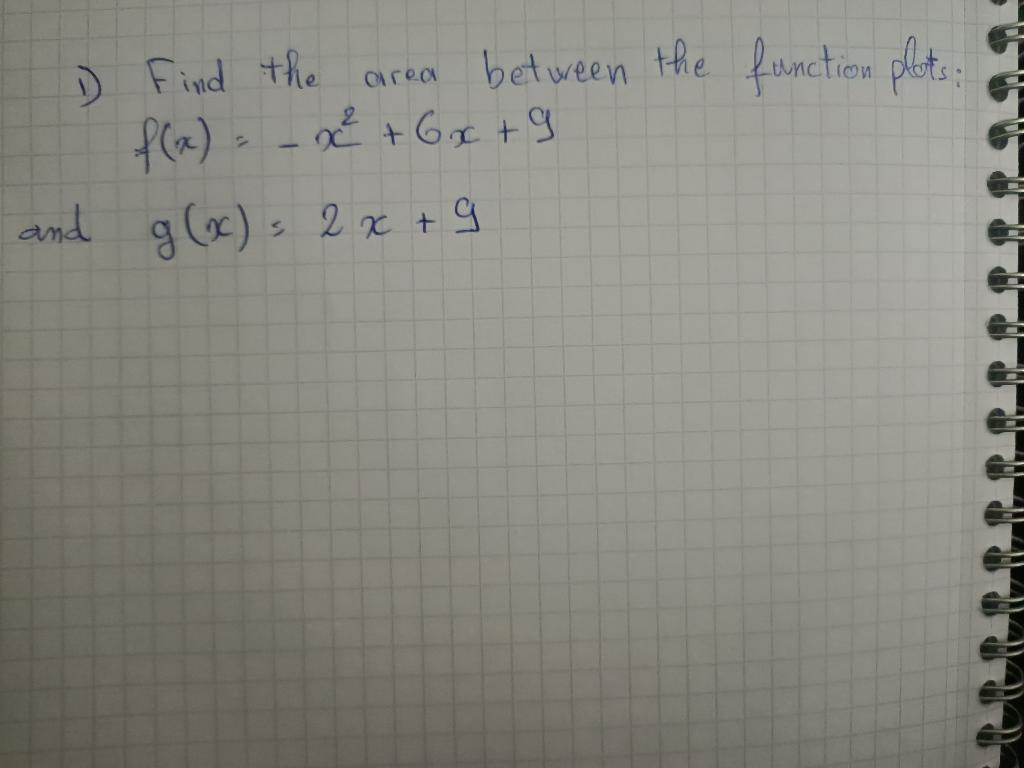 1) Find the area between the function plots:
f(x) = -x² + 6x + 9
and g(x) = 2x + 9